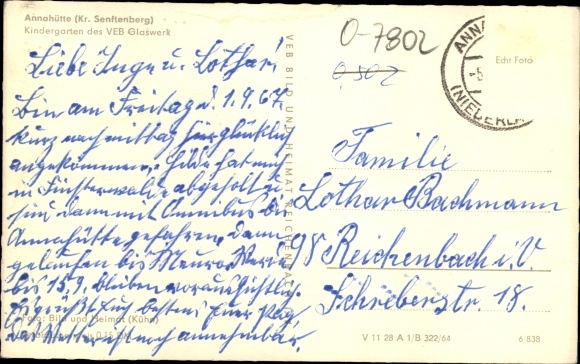 Annahütte (Kr. Senftenberg)
Kindergarten des VEB Glaswerk
Liebe Inge u. Lothar!
Bin am Freitag d. 1.9.67
kurz nachmittag hier glücklich
angekommen, Hilde hat mich
in Finsterwalde abgeholt
sind dann mit Omnibus bis
Annahütte gefahren, dann
gelaufen bis Meuro. Werde
bis 15.9. bleiben voraussichtlich.
Es grüßt Euch bestens Euer
das Wetter ist noch annehmbar.
Foto: Bild und Heimat (Kühn)
VEB BILD UND HEIMAT REICHENBACH
O-7802
0,50
ANNA
(NIEDERL
Echt Foto
Familie
Lothar Bachmann
98 Reichenbach i. V.
Schreberstr. 18.
V 11 28 A 1/B 322/64
6 838